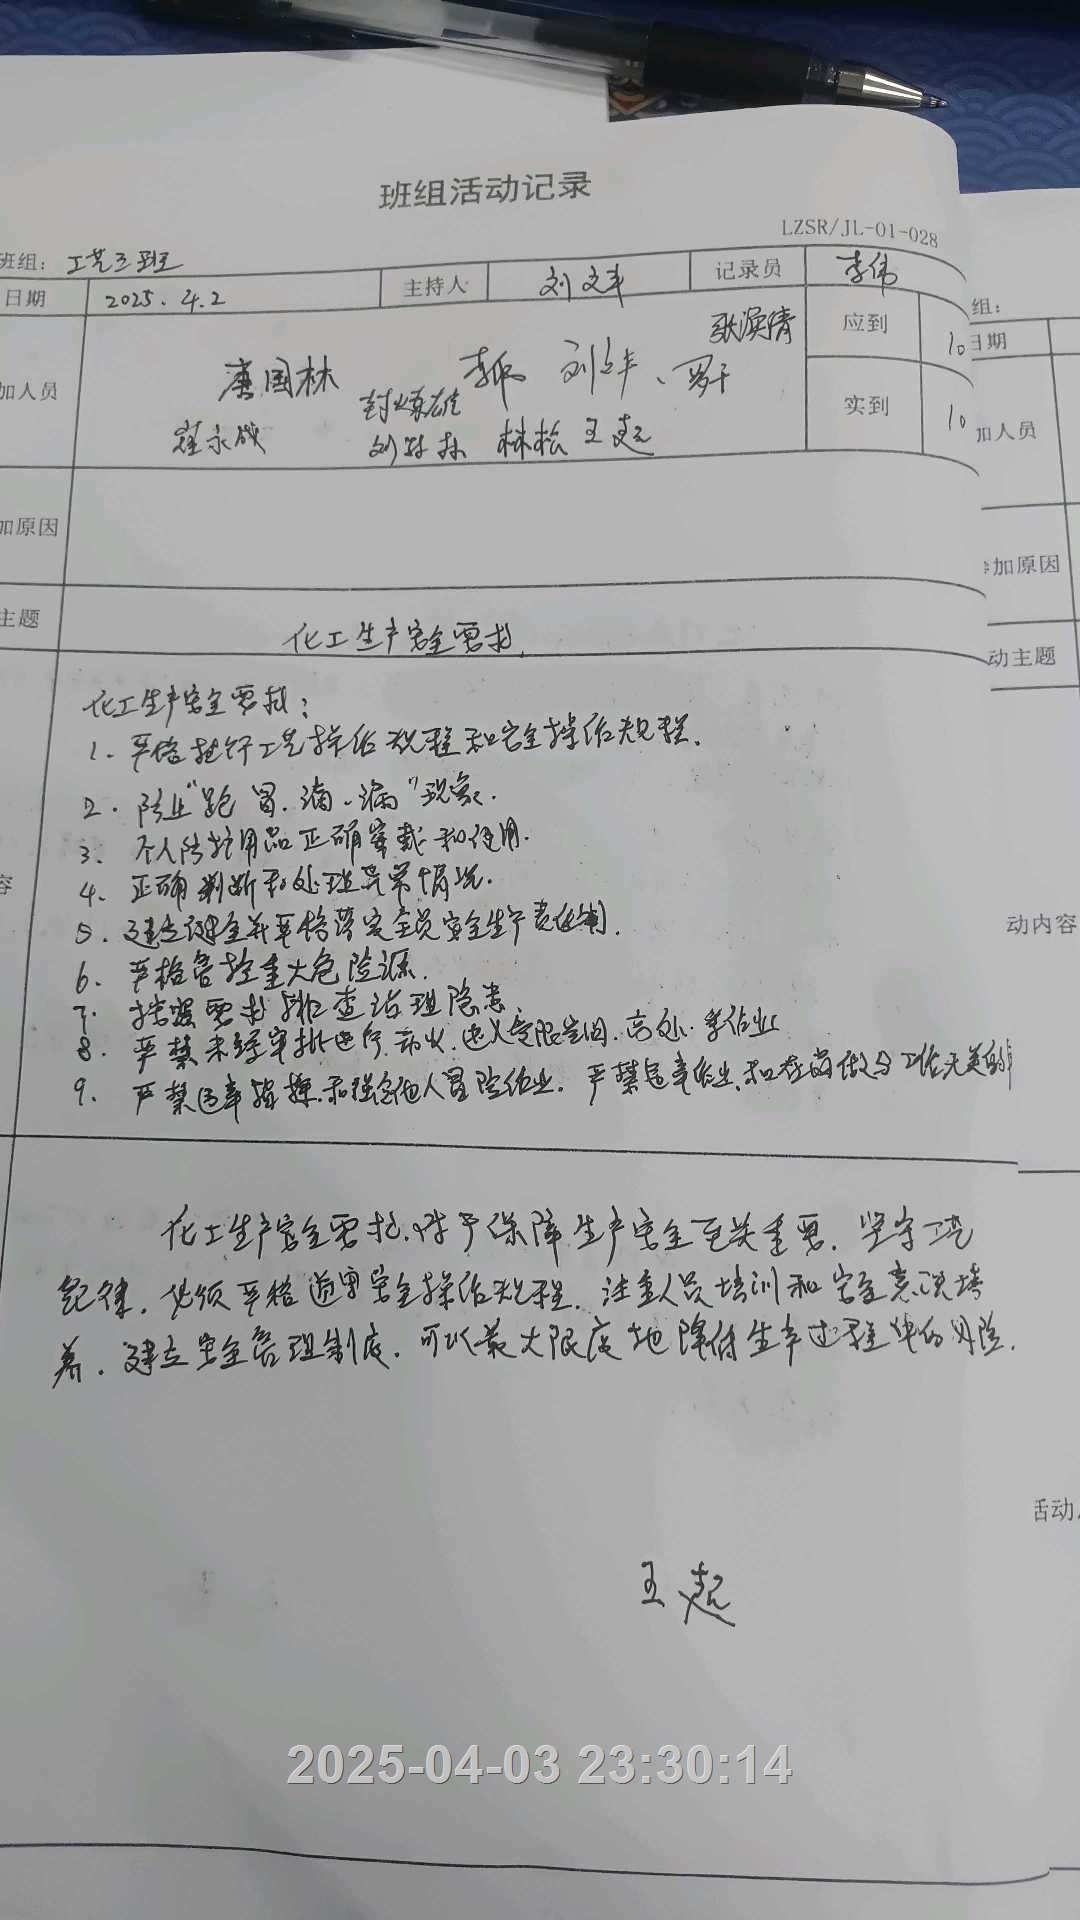 班组活动记录
LZSR/JL-01-028
班组: 工艺三班
日期 2025.4.2 主持人 刘文丰 记录员 李伟
张滨倩 应到 10
加人员 唐国林 李伟 刘文丰、罗干
实到 10
崔永成 刘林林 林松 王超
加原因
主题 化工生产安全要求.
化工生产安全要求:
1. 严格执行工艺操作规程和安全操作规程.
2. 防止"跑冒.滴.漏"现象.
3. 个人防护用品正确穿戴和使用.
4. 正确判断和处理异常情况.
5. 建立健全并严格落实全员安全生产责任制.
6. 严格管控重大危险源.
7. 按照要求排查治理隐患.
8. 严禁未经审批进行动火.进入受限空间.高处.等作业
9. 严禁违章指挥.和强令他人冒险作业.严禁违章作业.和在岗做与工作无关的事
容
化工生产安全要求.对于保障生产安全至关重要.坚守工艺
纪律.必须严格遵守安全操作规程.注重人员培训和安全意识培
养.建立安全管理制度.可以最大限度地降低生产过程中的风险.
王超
2025-04-03 23:30:14
组:
日期
加人员
参加原因
动主题
动内容
活动